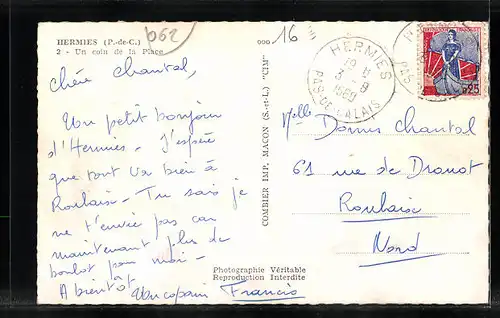 HERMIES (P.-de-C.)
2 - Un coin de la Place
062
000
16
HERMIES
18 H
3 - 9
1960
PAS-DE-CALAIS
0,25
Chère Chantal,
Un petit bonjour
d'Hermies. J'espère
que tout va bien à
Roubaix - Tu sais je
ne t'envie pas car
maintenant plus de
boulot pour moi -
A bientôt
Un copain Francis
COMBIER IMP. MACON (S.-et-L.) "CIM"
Photographie Véritable
Reproduction Interdite
Mlle Chantal
61 rue de Drouot
Roubaix
Nord